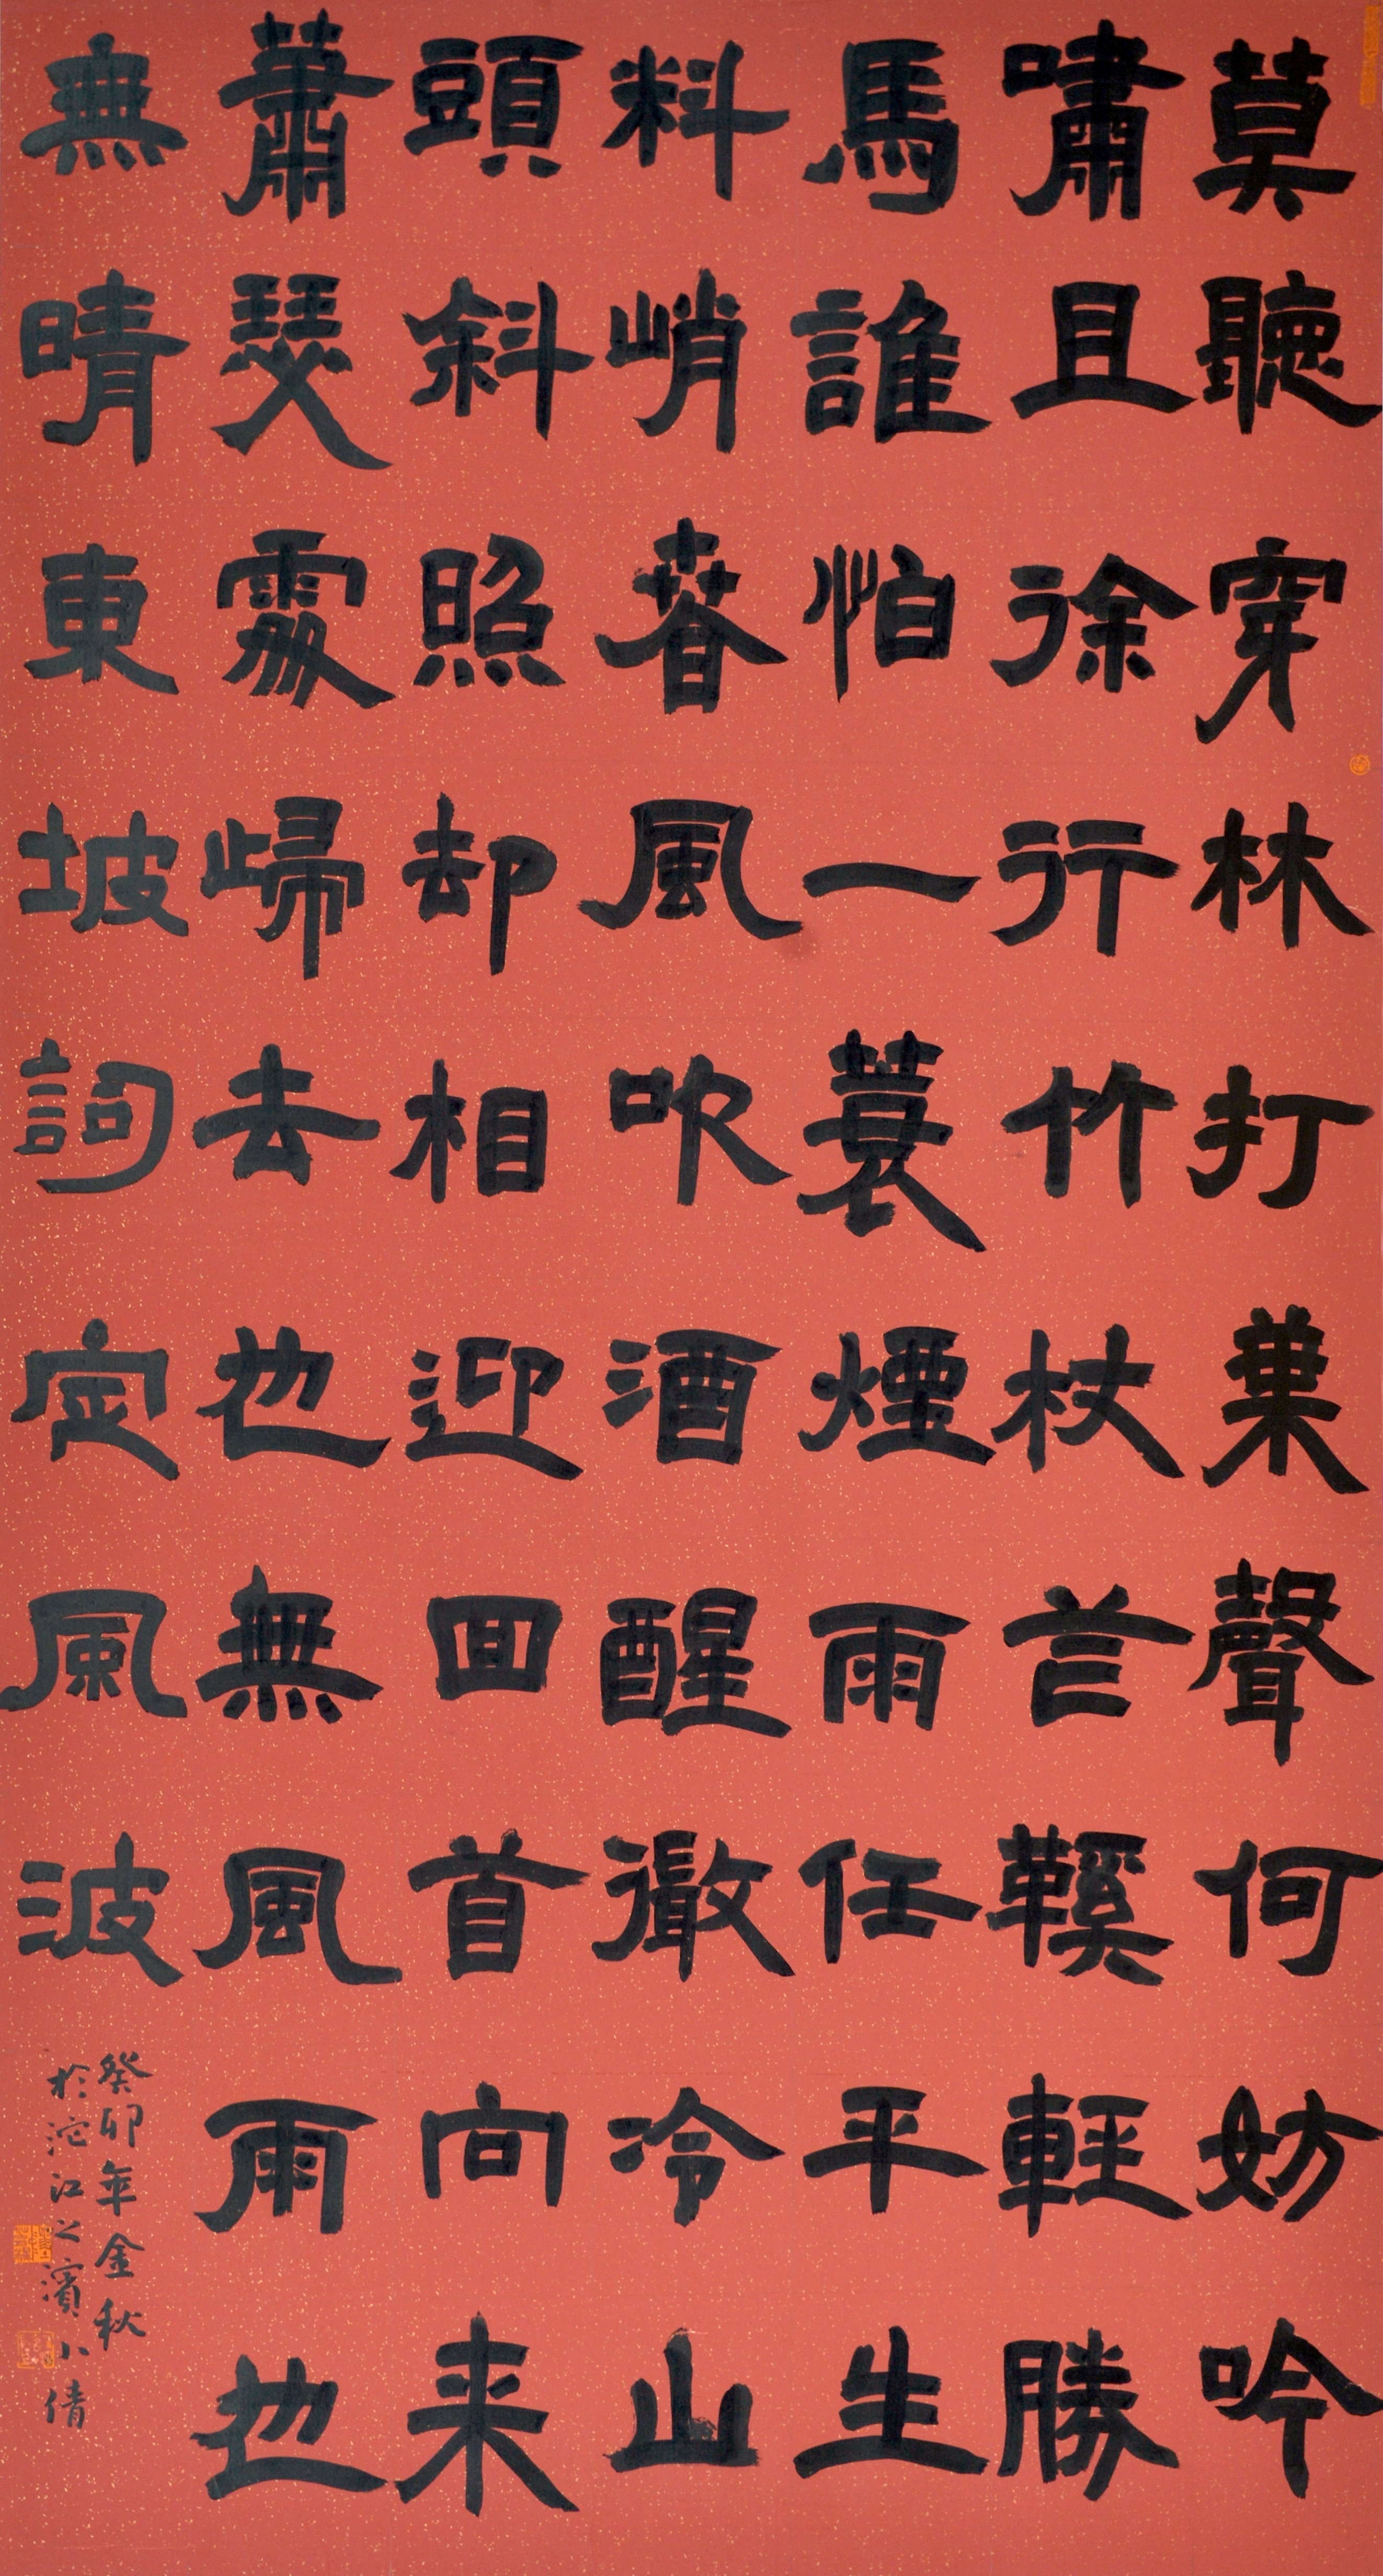 莫聽穿林打葉聲何妨吟
嘯且徐行竹杖芒鞵輕勝
馬誰怕一蓑煙雨任平生
料峭春風吹酒醒微冷山
頭斜照却相迎回首向来
蕭瑟處歸去也無風雨也
無晴東坡詞定風波
癸卯年金秋
於沱江之濱小倩